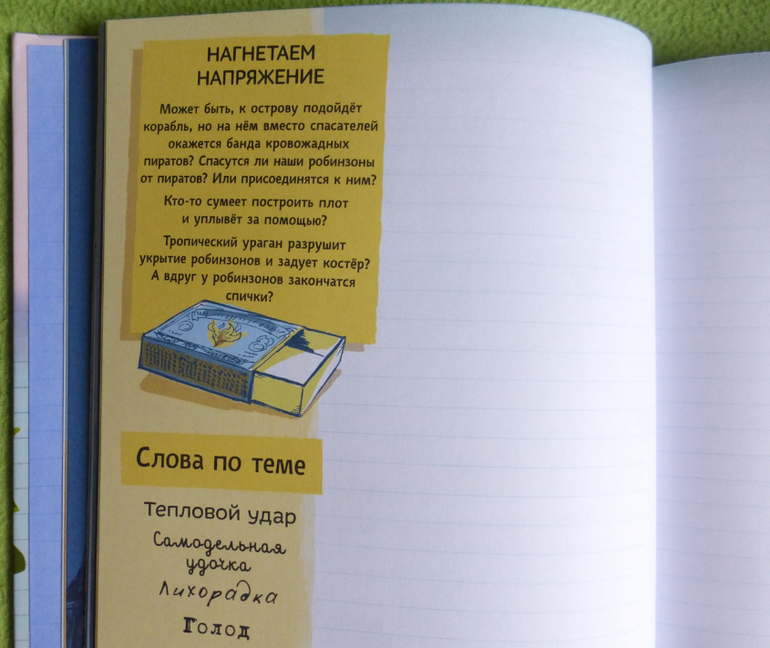 НАГНЕТАЕМ
НАПРЯЖЕНИЕ
Может быть, к острову подойдёт
корабль, но на нём вместо спасателей
окажется банда кровожадных
пиратов? Спасутся ли наши робинзоны
от пиратов? Или присоединятся к ним?
Кто-то сумеет построить плот
и уплывёт за помощью?
Тропический ураган разрушит
укрытие робинзонов и задует костёр?
А вдруг у робинзонов закончатся
спички?
Слова по теме
Тепловой удар
Самодельная
удочка
Лихорадка
Голод